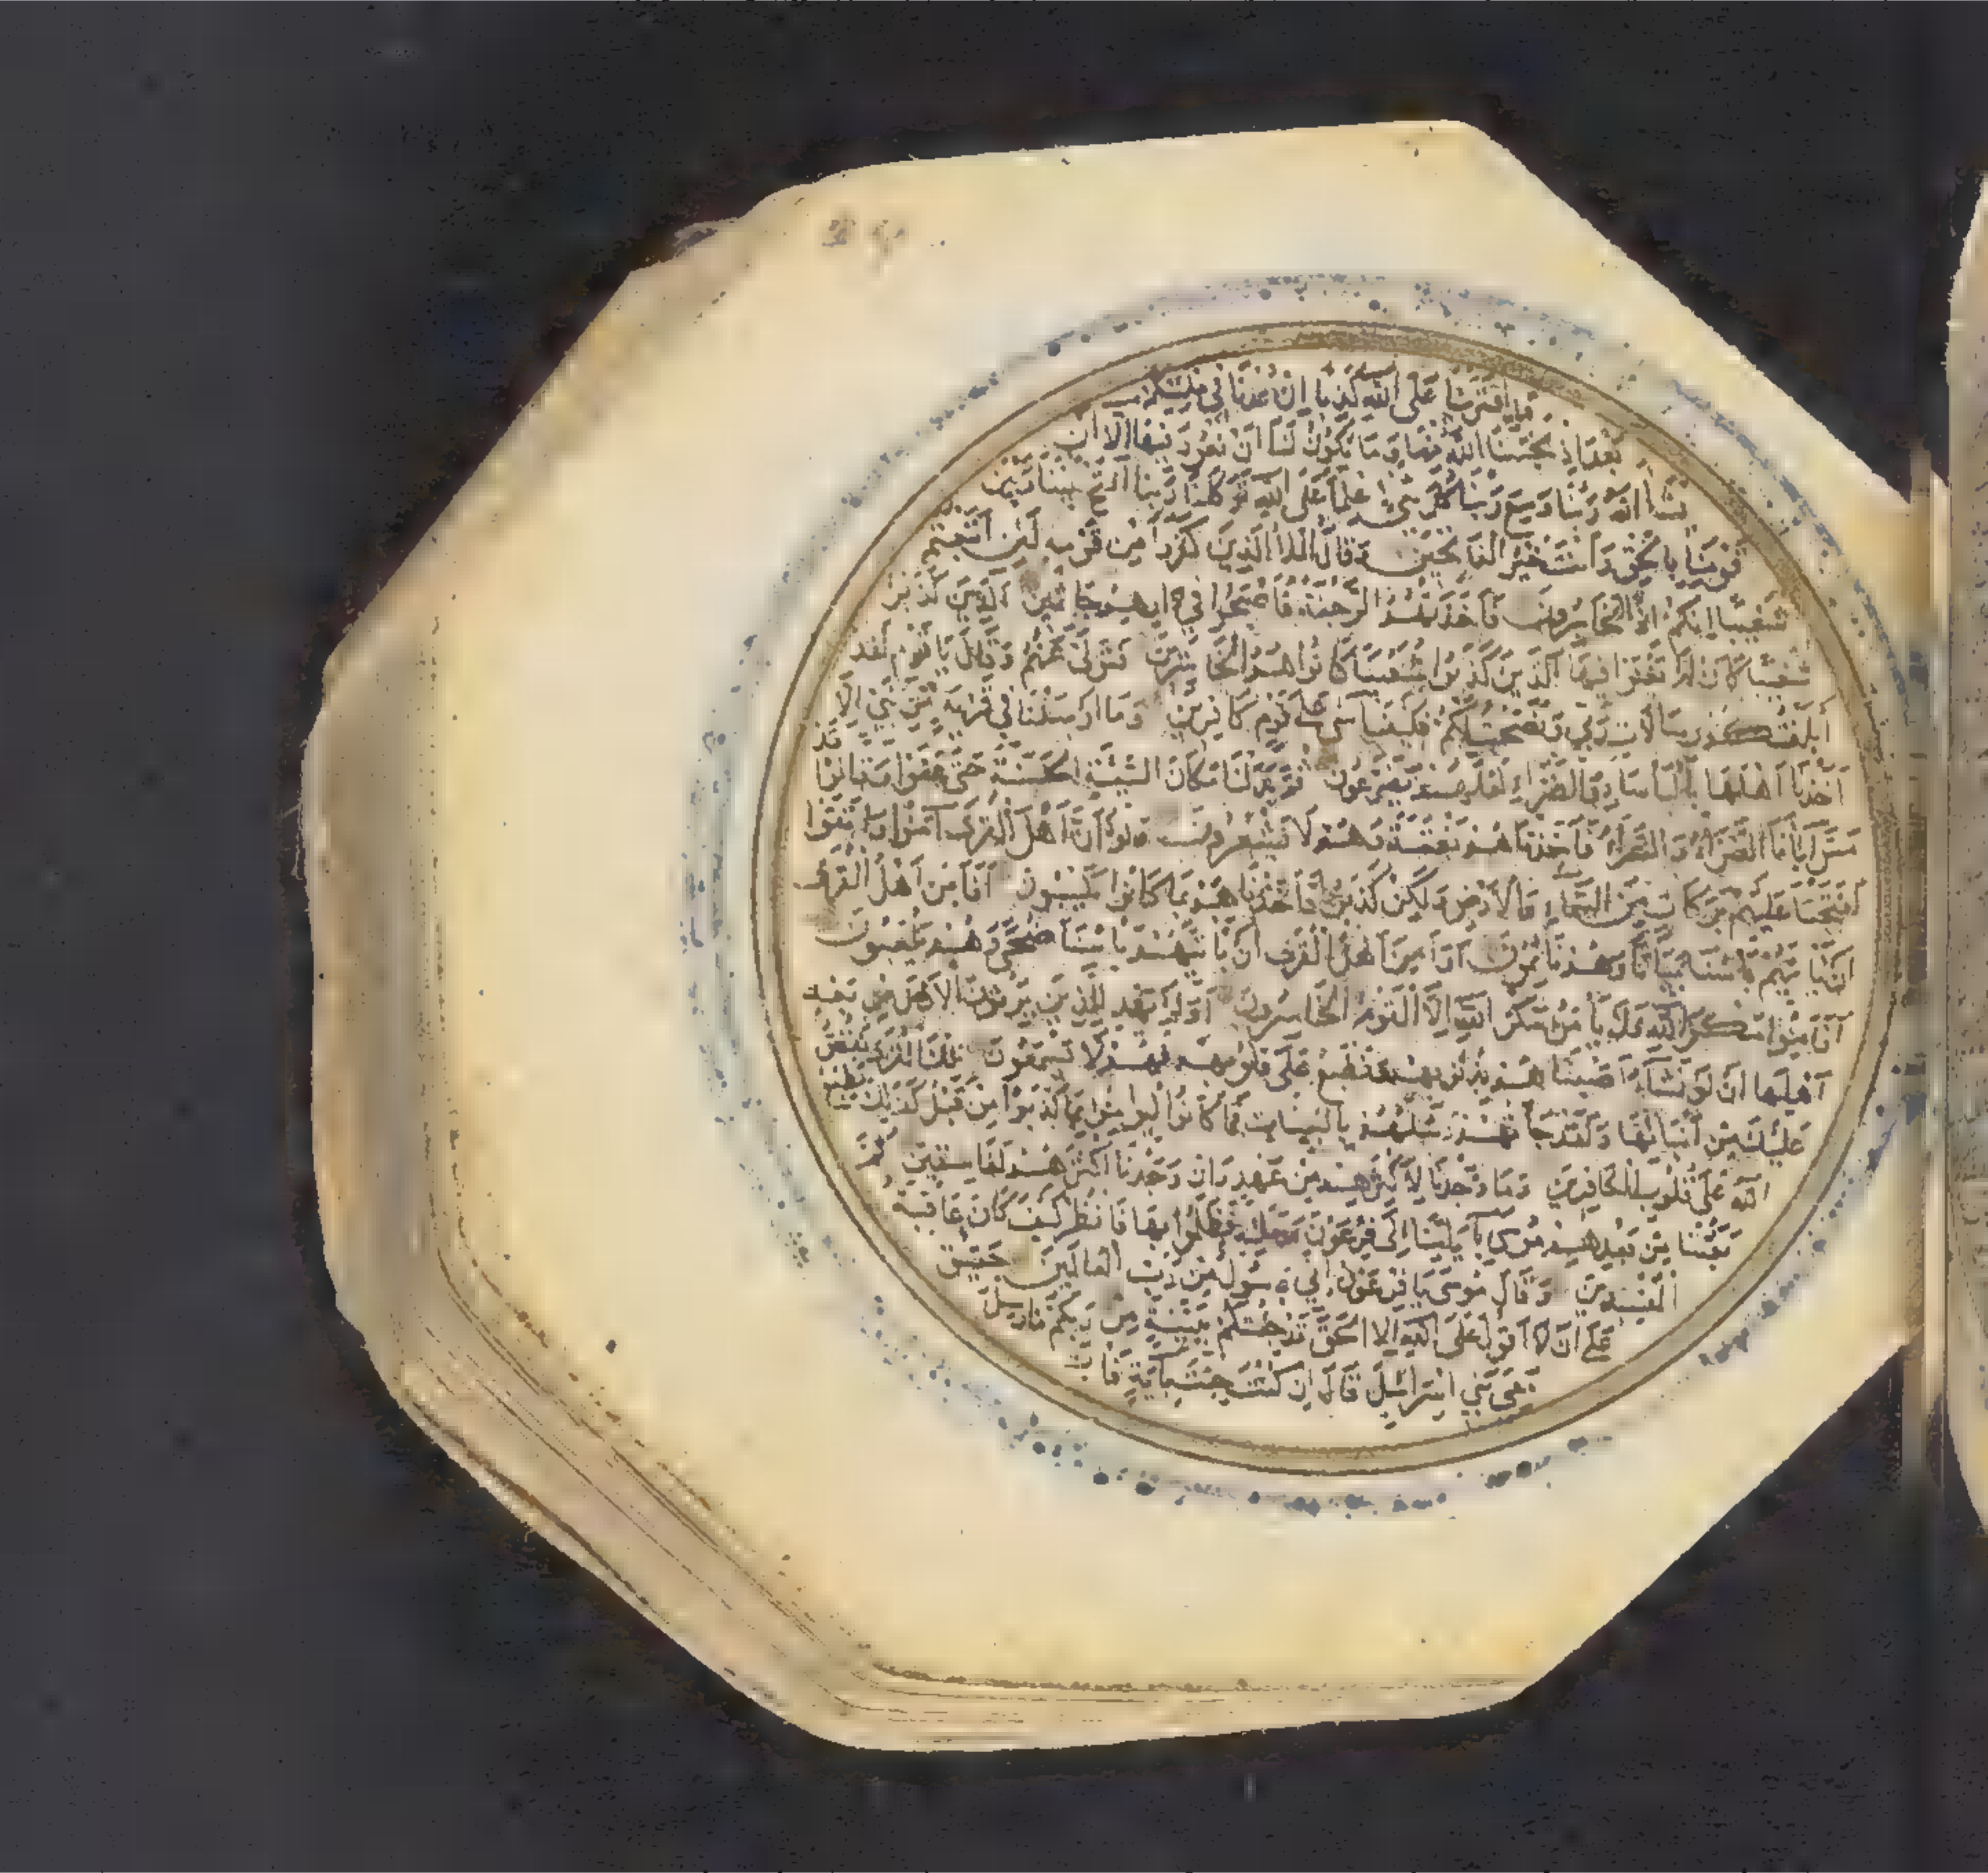 قد افترينا على الله كذبا ان عدنا في ملتكم
بعد اذ نجينا الله منها وما يكون لنا ان نعود فيها الا ان
يشاء الله ربنا وسع ربنا كل شيء علما على الله توكلنا ربنا افتح بيننا وبين
قومنا بالحق وانت خير الفاتحين وقال الملأ الذين كفروا من قومه لئن اتبعتم
شعيبا انكم اذا لخاسرون فاخذتهم الرجفة فاصبحوا في جاثمين الذين كذبوا
شعيبا كان لم يغنوا فيها الذين كذبوا شعيبا كانوا هم الخاسرين فتولى عنهم وقال يا قوم لقد
ابلغتكم رسالات ربي ونصحت لكم فكيف آسى على قوم كافرين وما ارسلنا في قرية من نبي الا
اخذنا اهلها بالبأساء والضراء لعلهم يضرعون ثم بدلنا مكان السيئة الحسنة حتى عفوا وقالوا قد
مس آباءنا الضراء والسراء فاخذناهم بغتة وهم لا يشعرون ولو ان اهل القرى آمنوا واتقوا
لفتحنا عليهم بركات من السماء والارض ولكن كذبوا فاخذناهم بما كانوا يكسبون افأمن اهل القرى
ان يأتيهم بأسنا بياتا وهم نائمون اوامن اهل القرى ان يأتيهم بأسنا ضحى وهم يلعبون
افأمنوا مكر الله فلا يأمن مكر الله الا القوم الخاسرون اولم يهد للذين يرثون الارض من بعد
اهلها ان لو نشاء اصبناهم بذنوبهم ونطبع على قلوبهم فهم لا يسمعون تلك القرى نقص
عليك من انبائها ولقد جاءتهم رسلهم بالبينات فما كانوا ليؤمنوا بما كذبوا من قبل كذلك يطبع
الله على قلوب الكافرين وما وجدنا لاكثرهم من عهد وان وجدنا اكثرهم لفاسقين ثم
بعثنا من بعدهم موسى بآياتنا الى فرعون وملئه فظلموا بها فانظر كيف كان عاقبة
المفسدين وقال موسى يا فرعون اني رسول من رب العالمين حقيق
على ان لا اقول على الله الا الحق قد جئتكم ببينة من ربكم فارسل
معي بني اسرائيل قال ان كنت جئت بآية فات